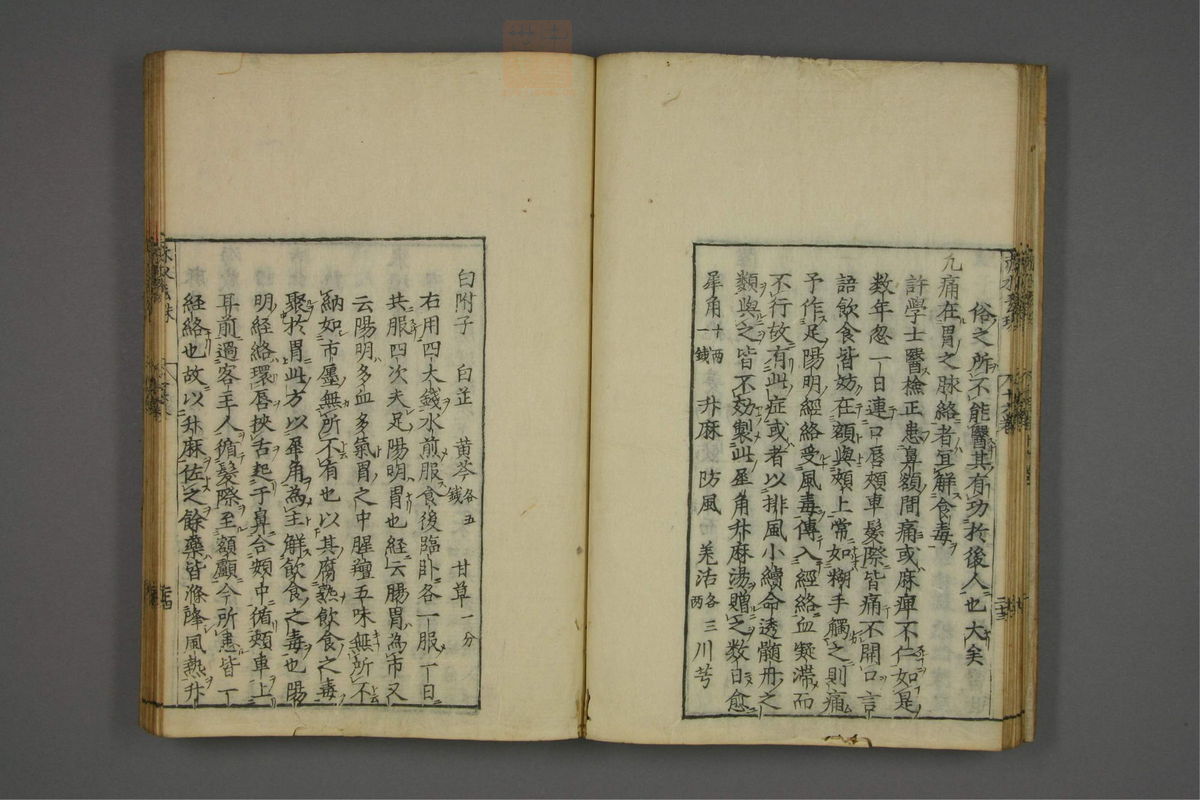 俗之所不能醫其有功於後人也大矣
九痛在胃之脉絡者宜觧食毒
許學士醫檢正患鼻額間痛或麻痺不仁如是
数年忽一日連口唇頰車髮際皆痛不開口言
語飲食皆妨在額與頰上常如糊手觸之則痛
予作足陽明経絡受風毒傳入経絡血凝滞而
不行故有此症或者以排風小續命透髓丹之
類與之皆不効製此犀角升麻湯贈之数日愈
犀角十両一錢 升麻 防風 羌活各三両 川芎
白附子 白芷 黄芩各五錢 甘草一分
右用四大錢水煎服食後臨卧各一服一日
共服四次夫足陽明胃也経云腸胃為市又
云陽明多血多氣胃之中腥羶五味無所不
納如市廛無所不有也以其腐熟飲食之毒
聚於胃此方以犀角為主觧飲食之毒也陽
明経絡環唇挾舌起于鼻合頰中循頰車上
耳前過客主人循髮際至額顱今所患皆一
経絡也故以升麻佐之餘藥皆滌降風熱升